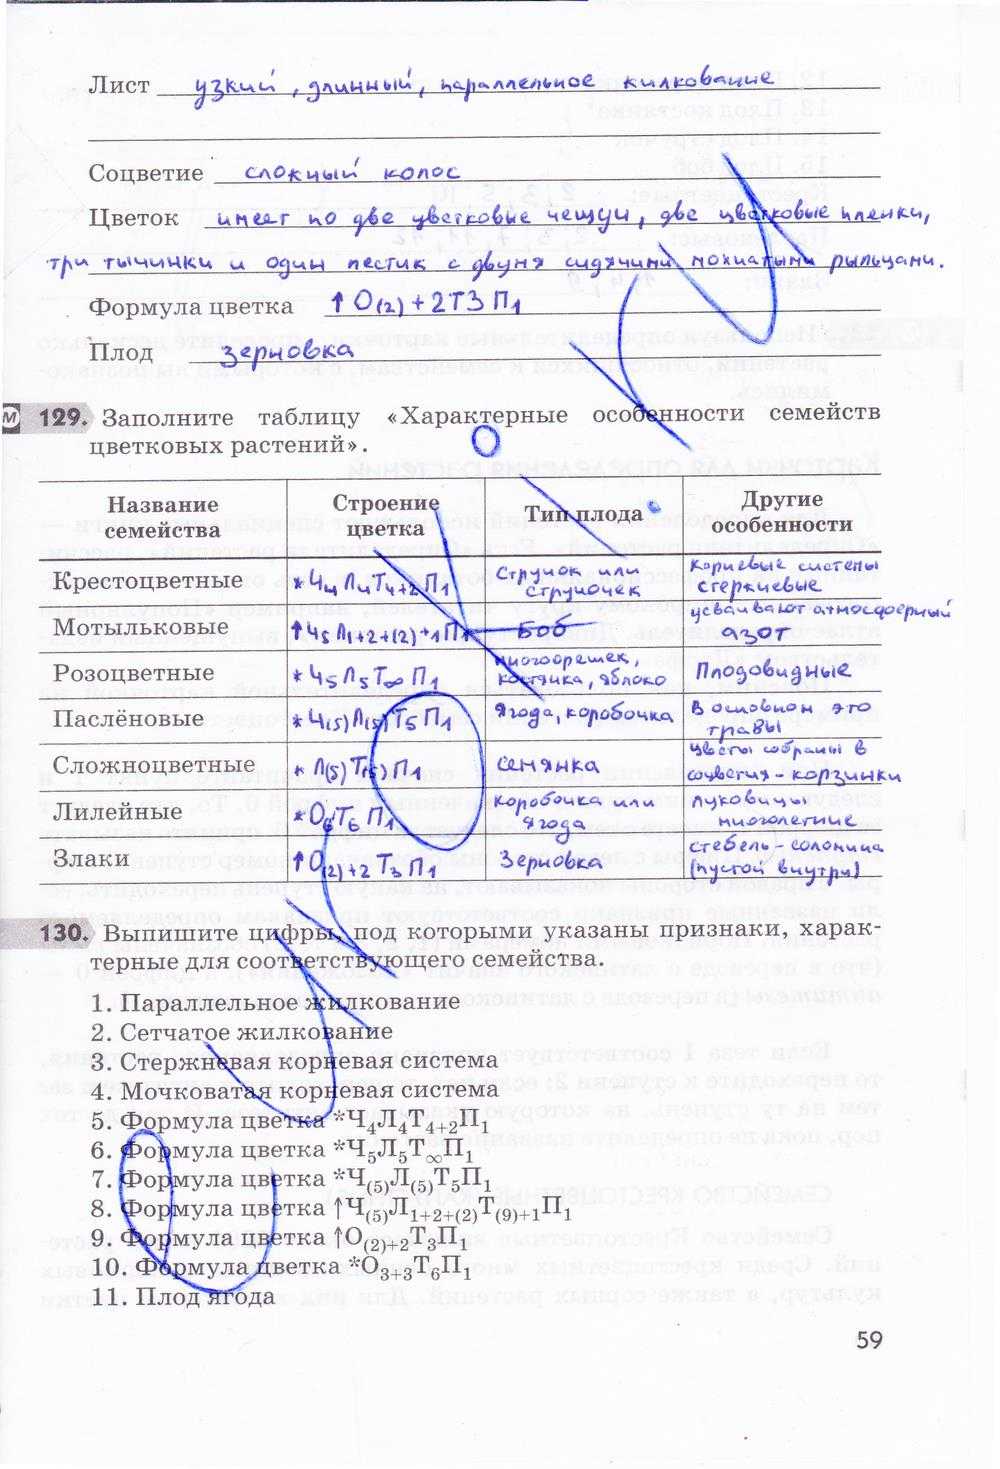 Лист узкий, длинный, параллельное жилкование
Соцветие сложный колос
Цветок имеет по две цветковые чешуи, две цветковые пленки,
три тычинки и один пестик с двумя сидячими мохнатыми рыльцами.
Формула цветка ↑О(2)+2Т3П1
Плод зерновка
М 129. Заполните таблицу «Характерные особенности семейств
цветковых растений».
Название семейства | Строение цветка | Тип плода | Другие особенности
Крестоцветные | *Ч4Л4Т4+2П1 | Стручок или стручочек | Корневые системы стержневые
Мотыльковые | ↑Ч5Л1+2+(2)+1П1 | Боб | усваивают атмосферный азот
Розоцветные | *Ч5Л5Т∞П1 | многоорешек, костянка, яблоко | Плодовидные
Паслёновые | *Ч(5)Л(5)Т5П1 | Ягода, коробочка | В основном это травы
Сложноцветные | *Л(5)Т(5)П1 | семянка | цветы собраны в соцветия-корзинки
Лилейные | *О6Т6П1 | коробочка или ягода | луковицы многолетние
Злаки | ↑О(2)+2Т3П1 | Зерновка | стебель-соломина (пустой внутри)
130. Выпишите цифры, под которыми указаны признаки, харак-
терные для соответствующего семейства.
1. Параллельное жилкование
2. Сетчатое жилкование
3. Стержневая корневая система
4. Мочковатая корневая система
5. Формула цветка *Ч4Л4Т4+2П1
6. Формула цветка *Ч5Л5Т∞П1
7. Формула цветка *Ч(5)Л(5)Т5П1
8. Формула цветка ↑Ч(5)Л1+2+(2)Т(9)+1П1
9. Формула цветка ↑О(2)+2Т3П1
10. Формула цветка *О3+3Т6П1
11. Плод ягода
59